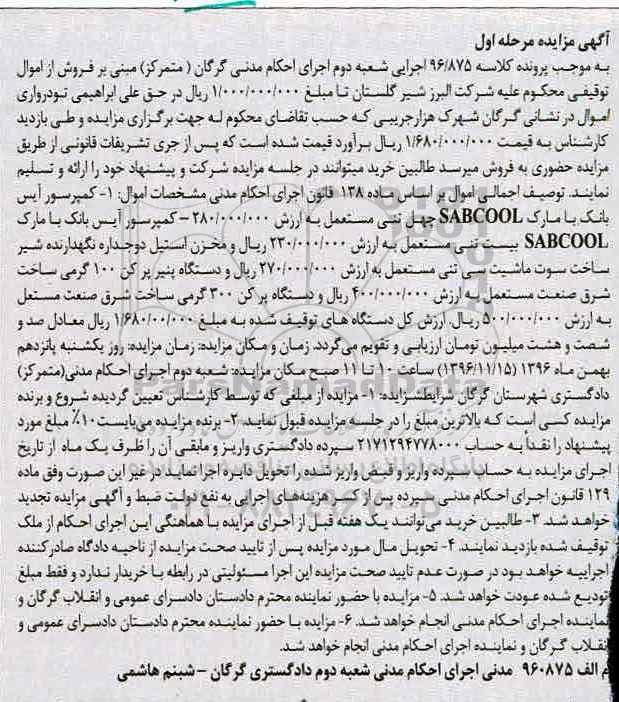 آگهی مزایده مرحله اول
به موجب پرونده کلاسه ۹۶/۸۷۵ اجرایی شعبه دوم اجرای احکام مدنی گرگان ( متمرکز) مبنی بر فروش از اموال
توقیفی محکوم علیه شرکت البرز شیر گلستان تا مبلغ ۱/۰۰۰/۰۰۰/۰۰۰ ریال در حق علی ابراهیمی تودرواری
اموال در نشانی گرگان شهرک هزارجریبی که حسب تقاضای محکوم له جهت برگزاری مزایده و طی بازدید
کارشناس به قیمت ۱/۶۸۰/۰۰۰/۰۰۰ ریال برآورد قیمت شده است که پس از جری تشریفات قانونی از طریق
مزایده حضوری به فروش میرسد طالبین خرید میتوانند در جلسه مزایده شرکت و پیشنهاد خود را ارائه و تسلیم
نمایند. توصیف اجمالی اموال بر اساس ماده ۱۳۸ قانون اجرای احکام مدنی مشخصات اموال: ۱- کمپرسور آیس
بانک با مارک SABCOOL چهل تنی مستعمل به ارزش ۲۸۰/۰۰۰/۰۰۰ – کمپرسور آیس بانک با مارک
SABCOOL بیست تنی مستعمل به ارزش ۲۳۰/۰۰۰/۰۰۰ ریال و مخزن استیل دوجداره نگهدارنده شیر
ساخت سوت ماشیت سی تنی مستعمل به ارزش ۲۷۰/۰۰۰/۰۰۰ ریال و دستگاه پنیر پر کن ۱۰۰ گرمی ساخت
شرق صنعت مستعمل به ارزش ۴۰۰/۰۰۰/۰۰۰ ریال و دستگاه پر کن ۳۰۰ گرمی ساخت شرق صنعت مستعل
به ارزش ۵۰۰/۰۰۰/۰۰۰ ریال. ارزش کل دستگاه های توقیف شده به مبلغ ۱/۶۸۰/۰۰/۰۰۰ ریال معادل صد و
شصت و هشت میلیون تومان ارزیابی و تقویم می‌گردد. زمان و مکان مزایده: زمان مزایده: روز یکشنبه پانزدهم
بهمن ماه ۱۳۹۶ (۱۳۹۶/۱۱/۱۵) ساعت ۱۰ تا ۱۱ صبح مکان مزایده: شعبه دوم اجرای احکام مدنی(متمرکز)
دادگستری شهرستان گرگان شرایطشزایده: ۱- مزایده از مبلغی که توسط کارشناس تعیین گردیده شروع و برنده
مزایده کسی است که بالاترین مبلغ را در جلسه مزایده قبول نماید. ۲- برنده مزایده می‌بایست ۱۰٪ مبلغ مورد
پیشنهاد را نقداً به حساب ۲۱۷۱۲۹۴۷۷۸۰۰۰ سپرده دادگستری واریز و مابقی آن را ظرف یک ماه از تاریخ
اجرای مزایده به حساب سپرده واریز و قبض واریز شده را تحویل دایره اجرا نماید در غیر این صورت وفق ماده
۱۲۹ قانون اجرای احکام مدنی سپرده پس از کسر هزینه‌های اجرایی به نفع دولت ضبط و آگهی مزایده تجدید
خواهد شد. ۳- طالبین خرید می‌توانند یک هفته قبل از اجرای مزایده با هماهنگی این اجرای احکام از ملک
توقیف شده بازدید نمایند. ۴- تحویل مال مورد مزایده پس از تایید صحت مزایده از ناحیه دادگاه صادرکننده
اجراییه خواهد بود در صورت عدم تایید صحت مزایده این اجرا مسئولیتی در رابطه با خریدار ندارد و فقط مبلغ
تودیع شده عودت خواهد شد. ۵- مزایده با حضور نماینده محترم دادستان دادسرای عمومی و انقلاب گرگان و
نماینده اجرای احکام مدنی انجام خواهد شد. ۶- مزایده با حضور نماینده محترم دادستان دادسرای عمومی و
انقلاب گرگان و نماینده اجرای احکام مدنی انجام خواهد شد.
م الف ۹۶۰۸۷۵ مدنی اجرای احکام مدنی شعبه دوم دادگستری گرگان – شبنم هاشمی
ParsNamadData